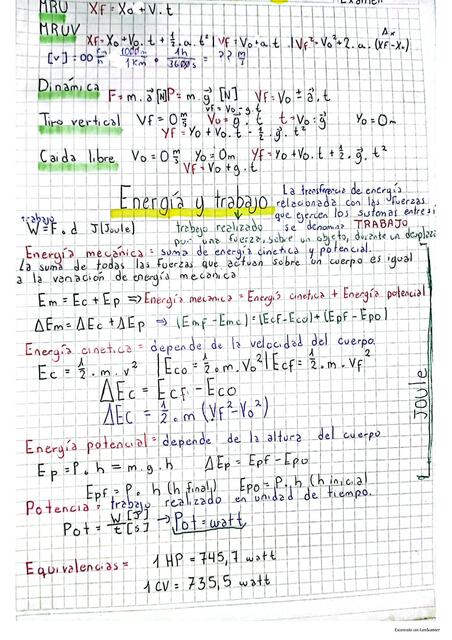 Examen
MRU Xf = Xo + V.t
MRUV Xf = Xo + Vo.t + 1/2.a.t² | Vf = Vo + a.t | Vf² = Vo² + 2.a.(Xf - Xo) Δx
[v] = 00 km/h . 1000m/1km . 1h/3600s = ?? m/s
Dinámica F = m.a [N] P = m.g [N] Vf = Vo ± a.t
Vf = Vo - g.t
Tiro vertical Vf = 0 m/s Vo = g.t t = Vo : g Yo = 0m
Yf = Yo + Vo.t - 1/2.g.t²
Caida libre Vo = 0 m/s Yo = 0m Yf = Yo + Vo.t + 1/2.g.t²
Vf = Vo + g.t
Energía y trabajo
La transferencia de energía
relacionada con las fuerzas
que ejercen los sistemas entre si
se denomina TRABAJO
trabajo
W = F.d J (Joule)
trabajo realizado
por una fuerza, sobre un objeto, durante un desplaza
Energía mecánica = suma de energía cinetica y potencial.
La suma de todas las fuerzas que actuan sobre un cuerpo es igual
a la variación de energía mecánica
Em = Ec + Ep ⇒ Energía mecanica = Energía cinetica + Energía potencial
ΔEm = ΔEc + ΔEp ⇒ (Emf - Emc) = (Ecf - Eco) + (Epf - Epo)
Energía cinetica = depende de la velocidad del cuerpo.
Ec = 1/2.m.v² | Eco = 1/2.m.Vo² | Ecf = 1/2.m.Vf²
ΔEc = Ecf - Eco
ΔEc = 1/2.m (Vf² - Vo²)
JOULE
Energía potencial = depende de la altura del cuerpo
Ep = P.h = m.g.h ΔEp = Epf - Epo
Epf = P.h (h final) Epo = P.h (h inicial)
Potencia = trabajo realizado en unidad de tiempo.
Pot = W [J] / t [s] → Pot = watt
Equivalencias = 1 HP = 745,7 watt
1 CV = 735,5 watt
Escaneado con CamScanner